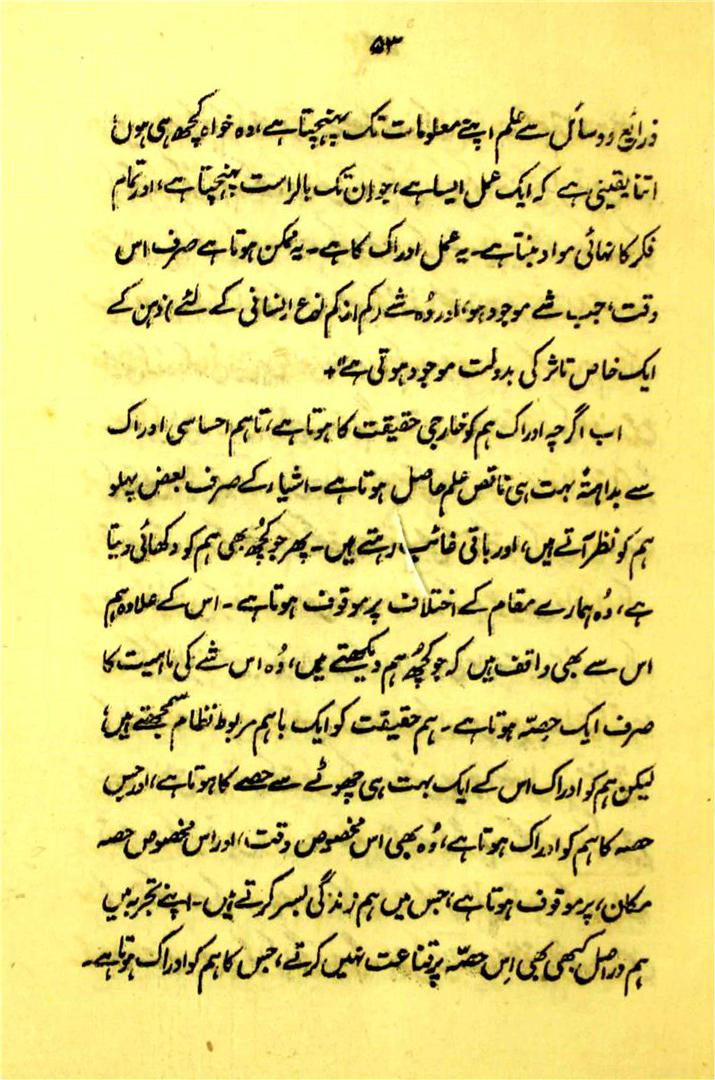 ۵۳
ذرائع و وسائل سے علم اپنے معلومات تک پہنچتا ہے، وہ خواہ کچھ ہی ہوں،
اتنا یقینی ہے کہ ایک عمل ایسا ہے، جو ان تک بالراست پہنچتا ہے، اور تمام
فکر کا نہائی مواد بنتا ہے۔ یہ عمل ادراک کا ہے۔ یہ ممکن ہوتا ہے صرف اس
وقت، جب شے موجود ہو، اور وُہ شے (کم از کم نوع انسانی کے لئے) ذہن کے
ایک خاص تاثر کی بدولت موجود ہوتی ہے"+
اب اگرچہ ادراک ہم کو خارجی حقیقت کا ہوتا ہے، تاہم احساسی ادراک
سے بداہتۂ بہت ہی ناقص علم حاصل ہوتا ہے۔ اشیاء کے صرف بعض پہلو
ہم کو نظر آتے ہیں، اور باقی غائب رہتے ہیں۔ پھر جو کچُھ بھی ہم کو دکھائی دیتا
ہے، وُہ ہمارے مقام کے اختلاف پر موقوف ہوتا ہے۔ اس کے علاوہ ہم
اس سے بھی واقف ہیں کہ جو کچُھ ہم دیکھتے ہیں، وُہ اس شے کی ماہیت کا
صرف ایک حصّہ ہوتا ہے۔ ہم حقیقت کو ایک باہم مربوط نظام سمجھتے ہیں،
لیکن ہم کو ادراک اس کے ایک بہت ہی چھوٹے سے حصے کا ہوتا ہے، اور جس
حصہ کا ہم کو ادراک ہوتا ہے، وُہ بھی اس مخصوص وقت، اور اس مخصوص حصہ
مکان، پر موقوف ہوتا ہے، جس میں ہم زندگی بسر کرتے ہیں۔ اپنے تجربہ میں
ہم دراصل کبھی بھی اِس حصّہ پر قناعت نہیں کرتے، جس کا ہم کو ادراک ہوتا ہے۔